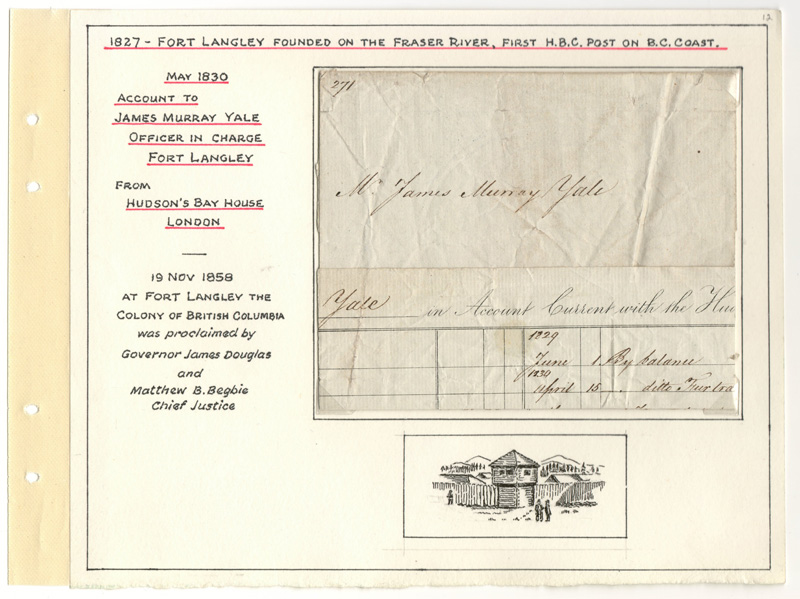 12
1827 – FORT LANGLEY FOUNDED ON THE FRASER RIVER, FIRST H.B.C. POST ON B.C. COAST.
MAY 1830
ACCOUNT TO
JAMES MURRAY YALE
OFFICER IN CHARGE
FORT LANGLEY
FROM
HUDSON'S BAY HOUSE
LONDON
19 NOV 1858
AT FORT LANGLEY THE
COLONY OF BRITISH COLUMBIA
was proclaimed by
Governor James Douglas
and
Matthew B. Begbie
Chief Justice
271
Mr. James Murray Yale
Yale in Account Current with the Hud
1829
June 1 By balance
1830
April 15 ditto Fur tra